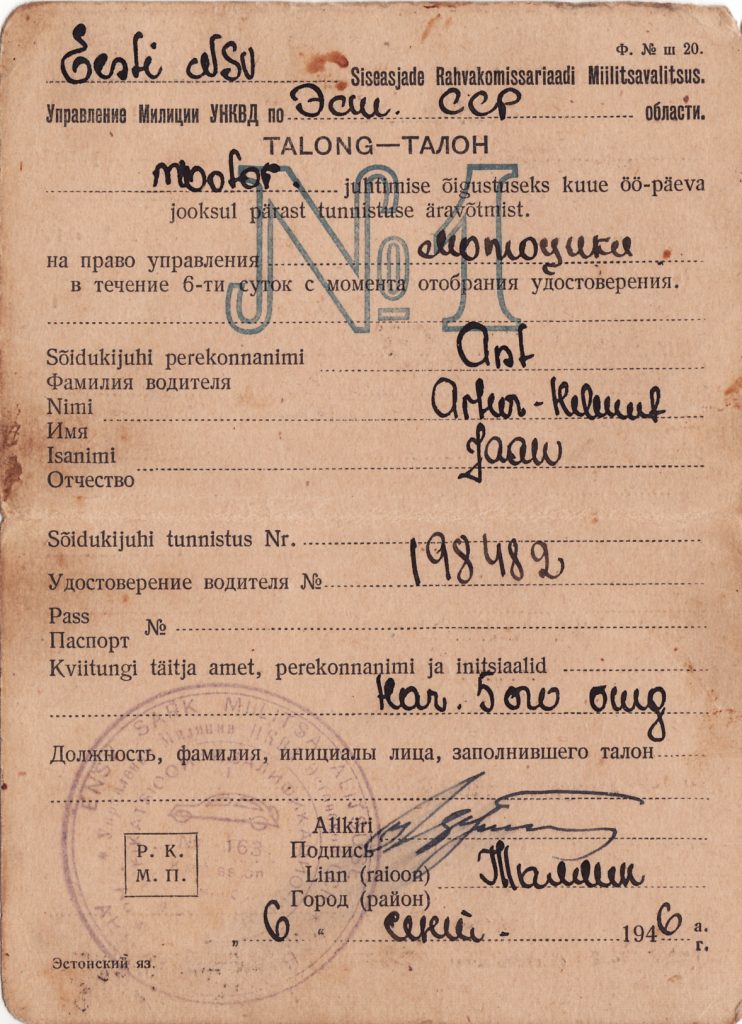 Ф. № ш 20.
Eesti NSV Siseasjade Rahvakomissariaadi Miilitsavalitsus.
Управление Милиции УНКВД по Эст. ССР области.
TALONG—ТАЛОН
№ 1
mootor. juhtimise õigustuseks kuue öö-päeva
jooksul pärast tunnistuse äravõtmist.
на право управления мотоцикл
в течение 6-ти суток с момента отобрания удостоверения.
Sõidukijuhi perekonnanimi
Фамилия водителя
Nimi
Имя
Isanimi Jaan
Отчество
Sõidukijuhi tunnistus Nr. 198482
Удостоверение водителя №
Pass
Паспорт №
Kviitungi täitja amet, perekonnanimi ja initsiaalid
Нач. 5 ого отд
Должность, фамилия, инициалы лица, заполнившего талон
Allkiri
Подпись
Linn (raioon) Таллин
Город (район)
Р. К.
М. П.
ENSV SARK MIILITSAVALITSUS
163
„ 6 “ 194 6 а.
г.
Эстонский яз.